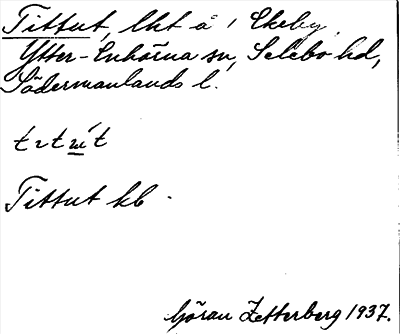 Tittut, lht å i Ekeby,
Ytter-Enhörna sn, Selebo hd,
Södermanlands l.
Tittut kb.
Göran Zetterberg 1937.